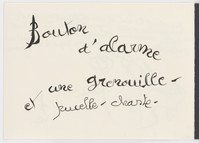 Bouton
d'alarme
et une grenouille -
jumelle - chante -